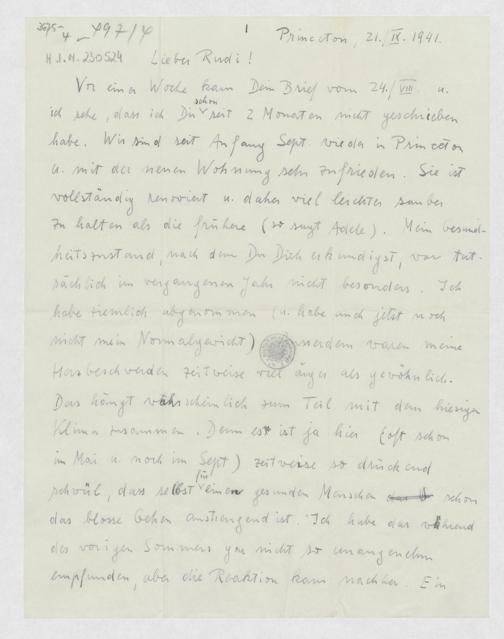 Princeton, 21./IX. 1941.
H.I.N. 230524
Lieber Rudi!
Vor einer Woche kam Dein Brief vom 24./VIII. u.
ich sehe, dass ich Dir schon seit 2 Monaten nicht geschrieben
habe. Wir sind seit Anfang Sept. wieder in Princeton
u. mit der neuen Wohnung sehr zufrieden. Sie ist
vollständig renoviert u. daher viel leichter sauber
zu halten als die frühere (so sagt Adele). Mein Gesund-
heitszustand, nach dem Du Dich erkundigst, war tat-
sächlich im vergangenen Jahr nicht besonders. Ich
habe ziemlich abgenommen (u. habe auch jetzt noch
nicht mein Normalgewicht) Ausserdem waren meine
beschwerden zeitweise viel ärger als gewöhnlich.
Das hängt wahrscheinlich zum Teil mit dem hiesigen
Klima zusammen. Denn es ist ja hier (oft schon
im Mai u. noch im Sept) zeitweise so drückend
schwül, dass selbst für einen gesunden Menschen schon
das blosse Gehen anstrengend ist. Ich habe das während
des vorigen Sommers gar nicht so unangenehm
empfunden, aber die Reaktion kam nachher. Ein